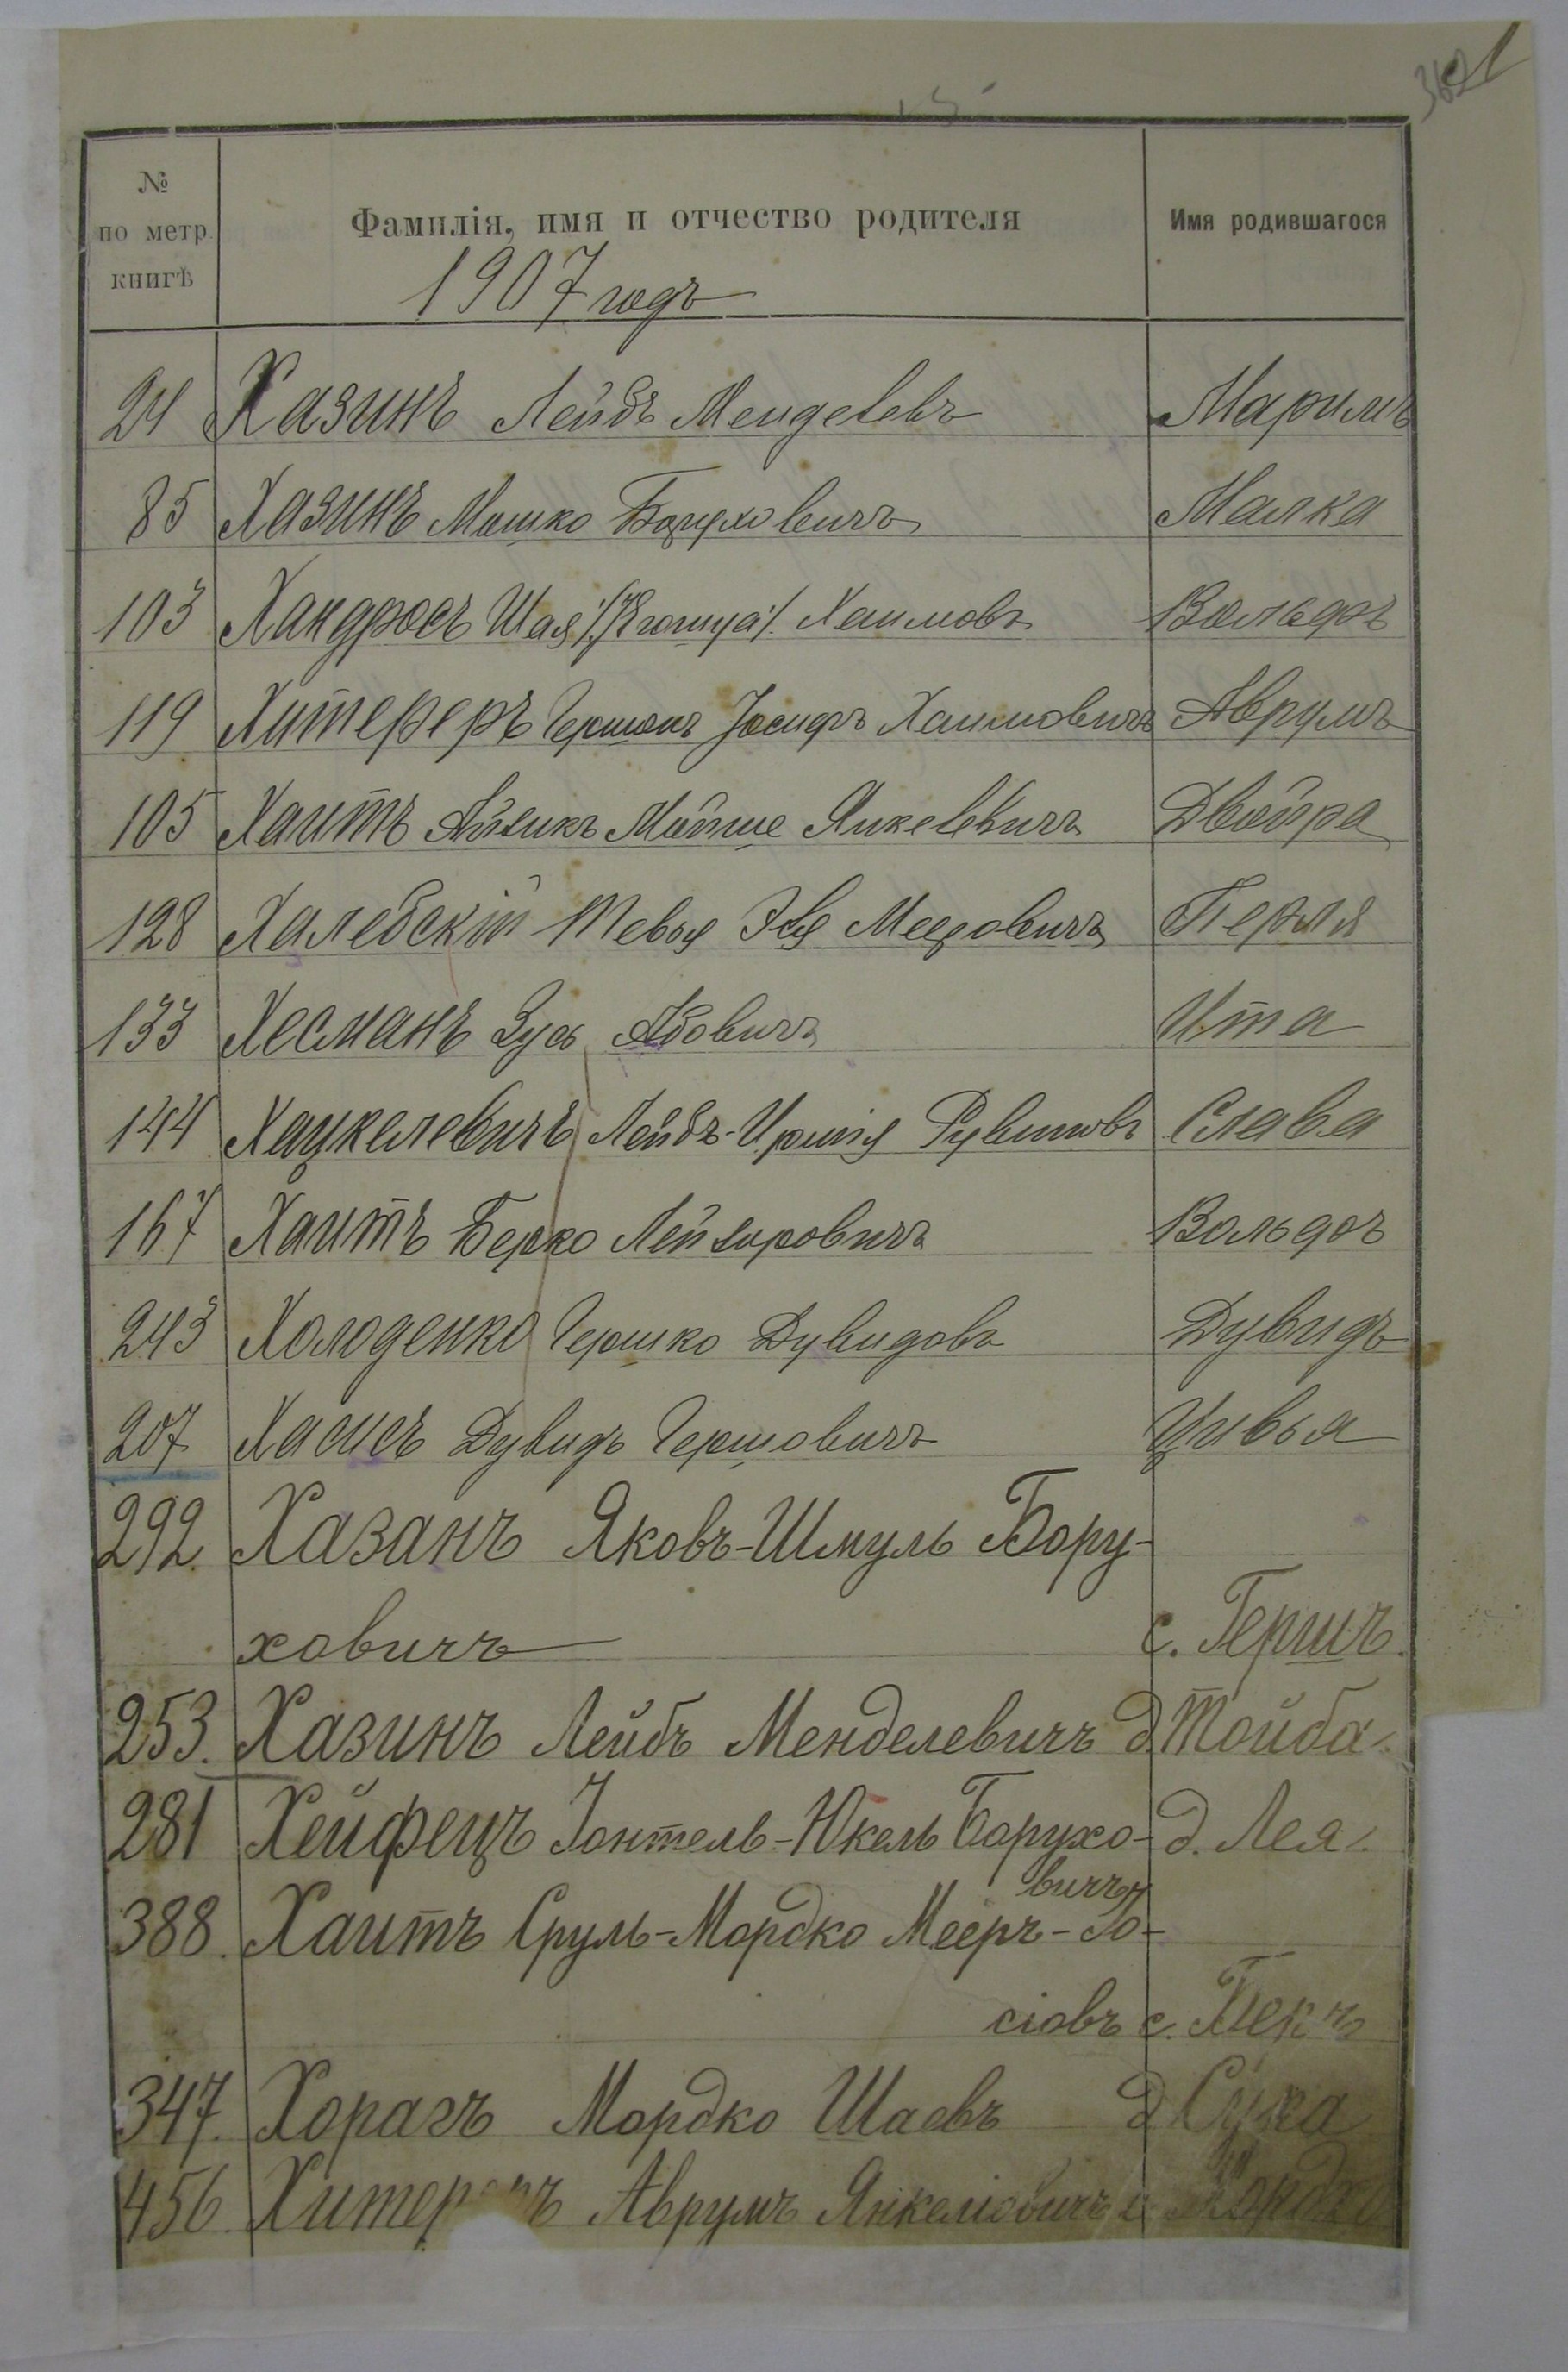 № по метр. книгѣ Фамилія, имя и отчество родителя Имя родившагося
1907 годъ
24 Хазинъ Лейбъ Менделевъ Маримъ
85 Хазинъ Мошко Боруховичъ Малка
103 Хандросъ Шая /:Егошуа:/ Хаимовъ Вольфъ
119 Хитереръ Гершонъ Іосифъ Хаимовичъ Аврумъ
105 Хаитъ Айзикъ Мойше Янкелевичъ Двойра
128 Халебскій Тевья Эля Мееровичъ Перля
133 Хесманъ Зусь Абовичъ Ита
144 Хацкелевичъ Лейбъ-Иршія Рувиновъ Слава
167 Хаитъ Берко Лейзеровичъ Вольфъ
243 Холоденко Гершко Дувидовъ Дувидъ
207 Хасисъ Дувидъ Гершовичъ Цивья
292. Хазанъ Яковъ-Шмуль Бору-
ховичъ с. Гершъ.
253. Хазинъ Лейбъ Менделевичъ д. Тойба.
281 Хейфецъ Іонтель-Юкель Борухо- д. Лея.
вичъ
388. Хаитъ Сруль-Мордко Мееръ-Іо-
сіовъ с.
347. Хорагъ Мордко Шаевъ д.
456. Аврумъ Янкеліовичъ с. Мордко